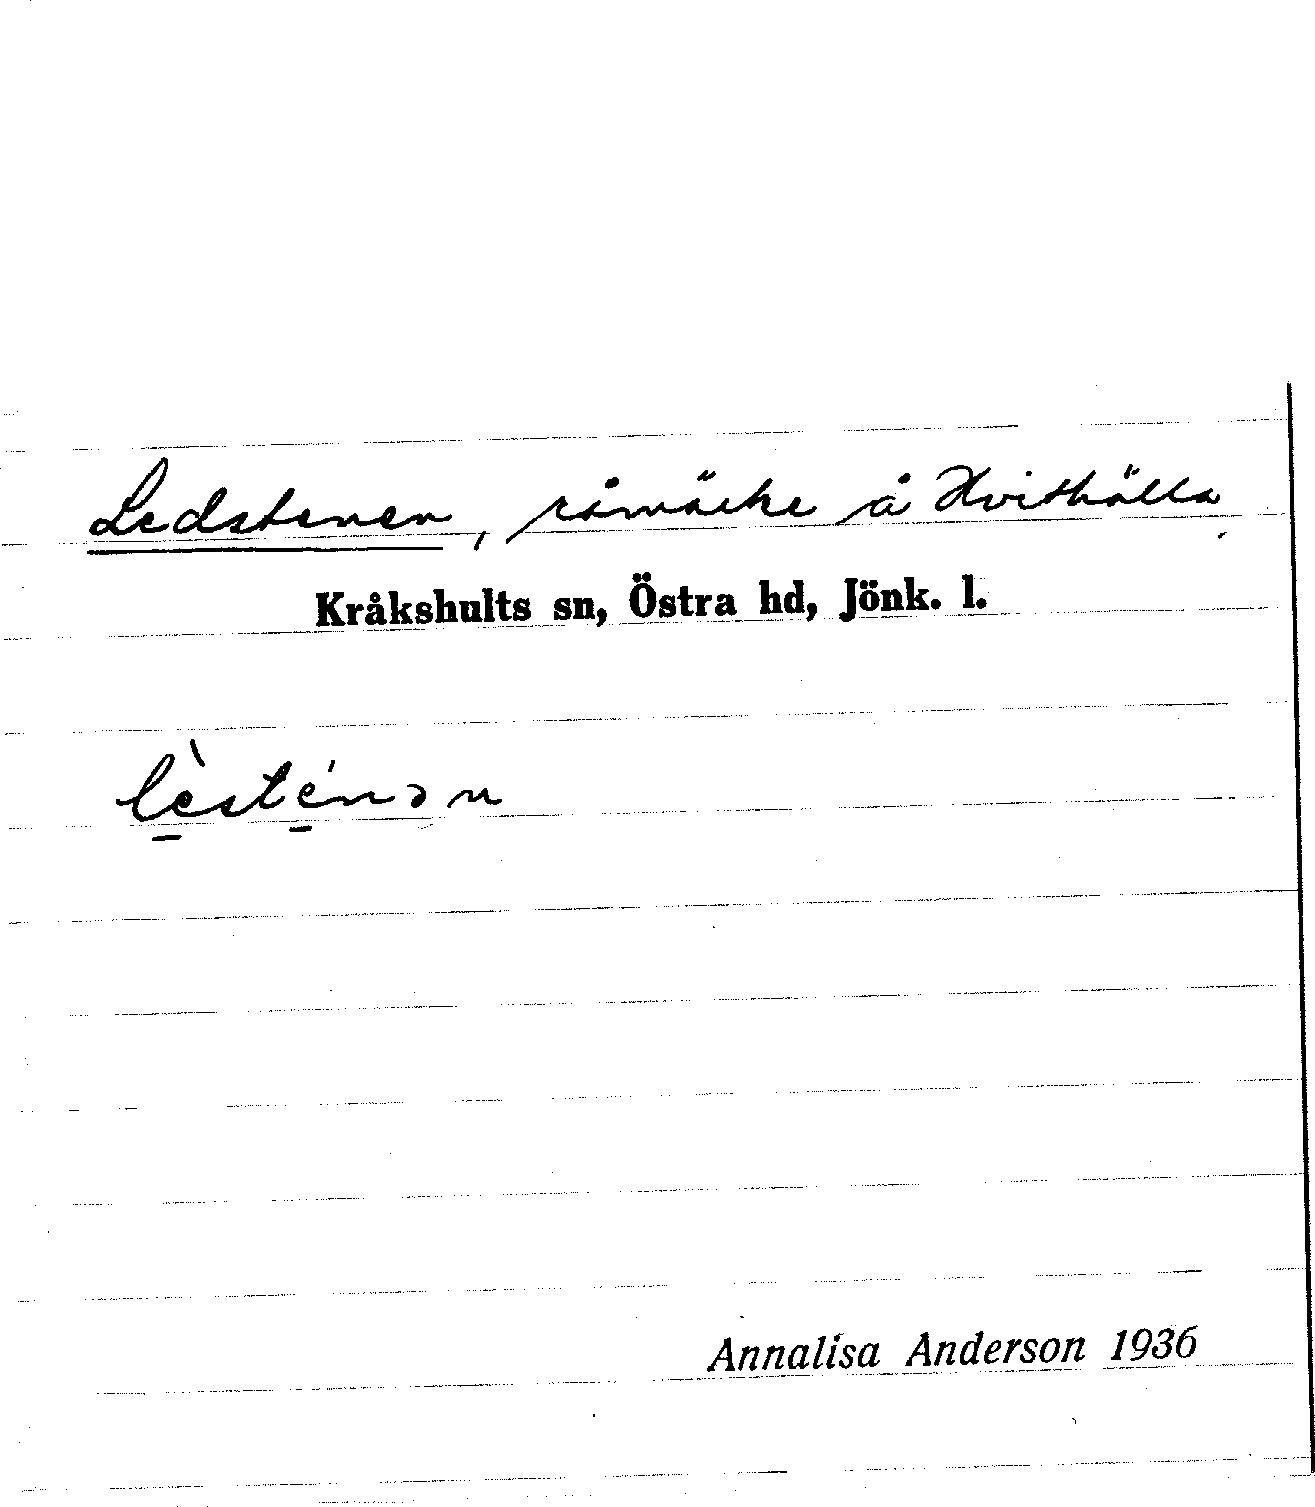 Ledstenen, råmärke å Hvithälla
Kråkshults sn, Östra hd, Jönk. l.
lèsténən
Annalisa Anderson 1936